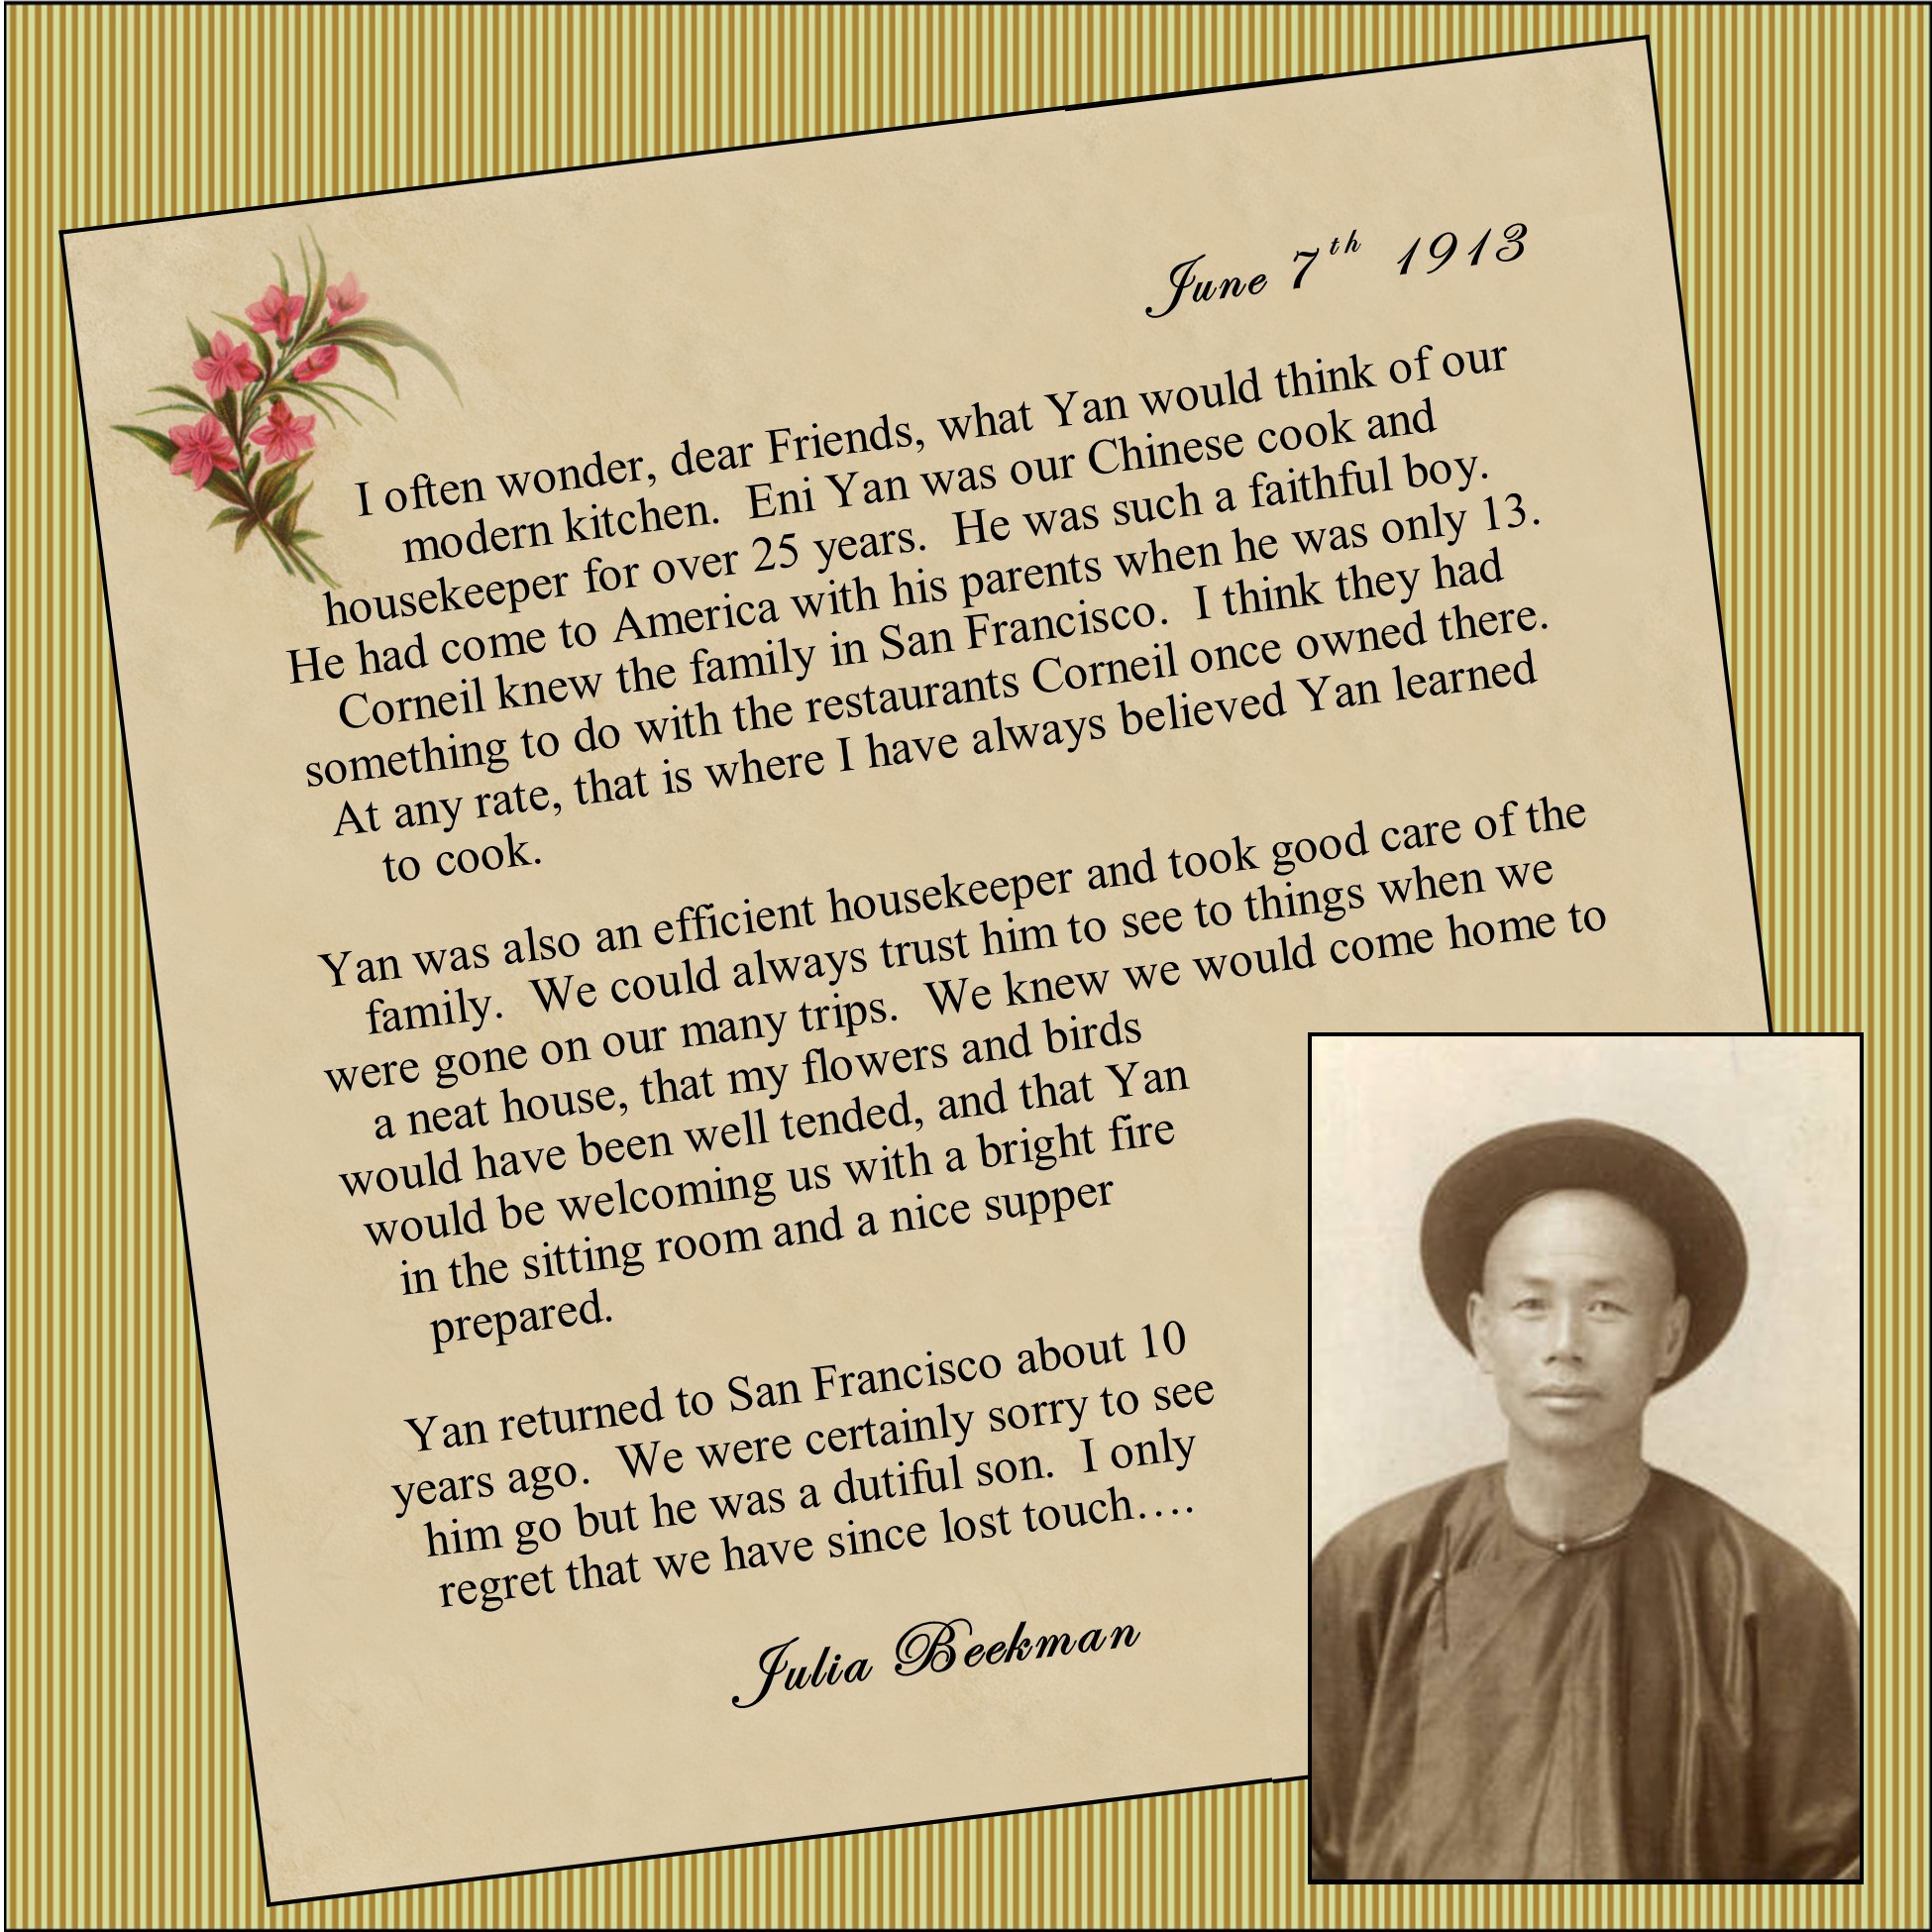 June 7th 1913
I often wonder, dear Friends, what Yan would think of our
modern kitchen. Eni Yan was our Chinese cook and
housekeeper for over 25 years. He was such a faithful boy.
He had come to America with his parents when he was only 13.
Corneil knew the family in San Francisco. I think they had
something to do with the restaurants Corneil once owned there.
At any rate, that is where I have always believed Yan learned
to cook.
Yan was also an efficient housekeeper and took good care of the
family. We could always trust him to see to things when we
were gone on our many trips. We knew we would come home to
a neat house, that my flowers and birds
would have been well tended, and that Yan
would be welcoming us with a bright fire
in the sitting room and a nice supper
prepared.
Yan returned to San Francisco about 10
years ago. We were certainly sorry to see
him go but he was a dutiful son. I only
regret that we have since lost touch….
Julia Beekman